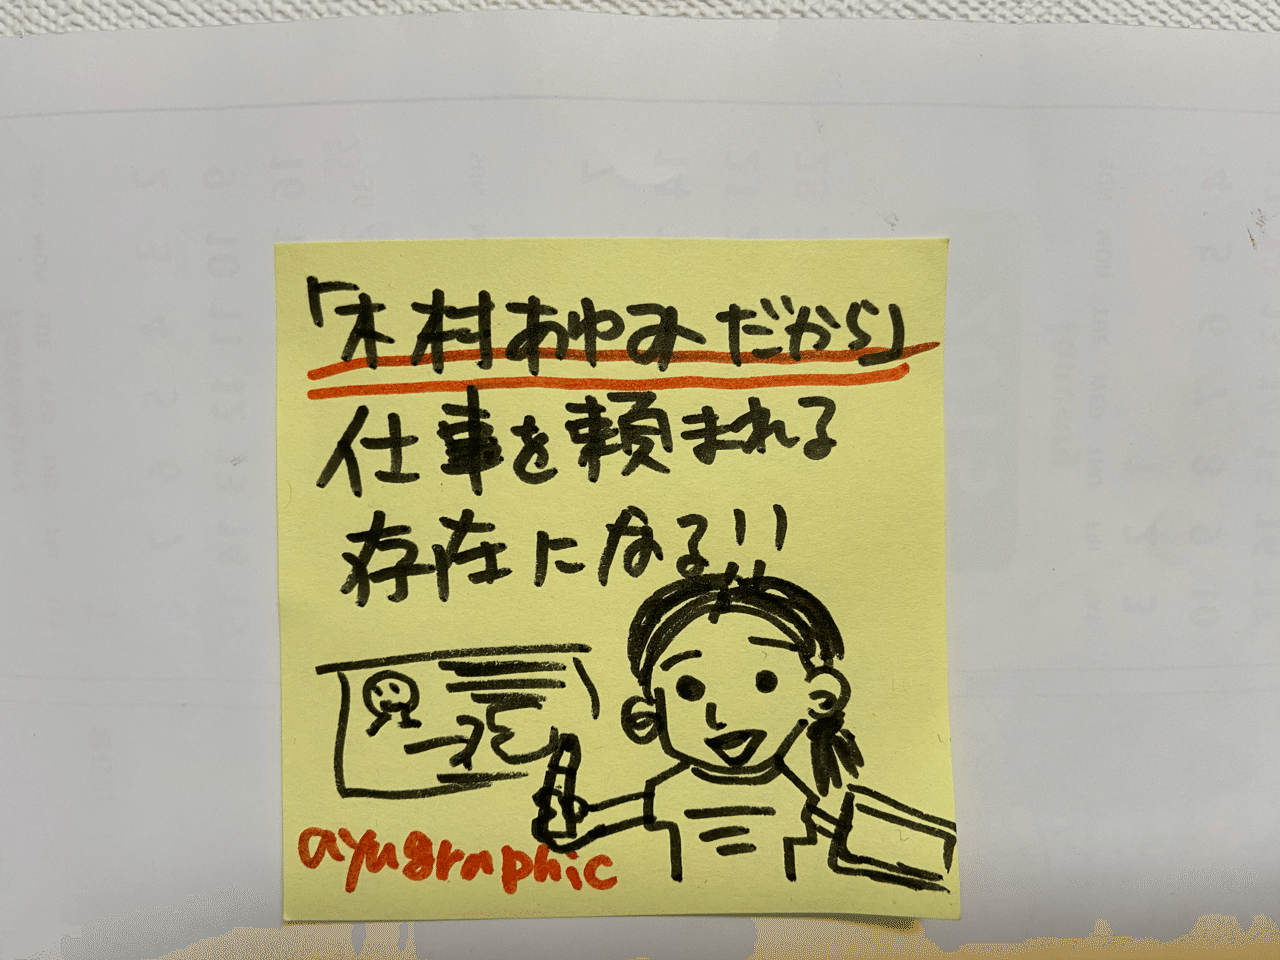 「木村あゆみだから」
仕事を頼まれる
存在になる!!
ayugraphic